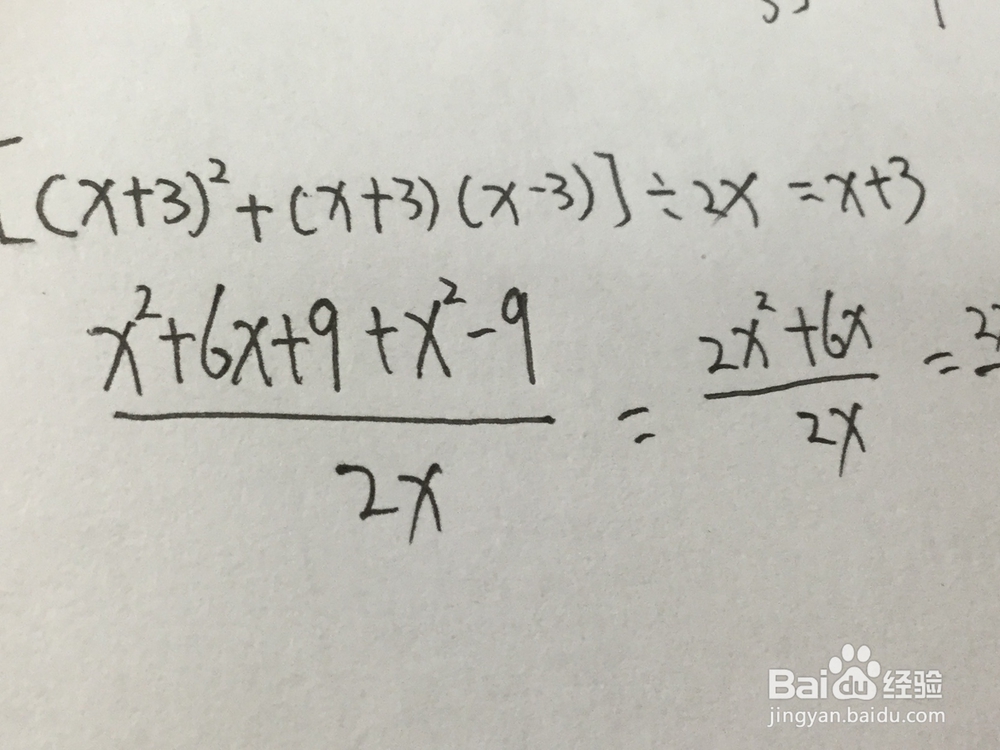 [(x+3)²+(x+3)(x-3)]÷2x=x+3
x²+6x+9+x²-9 / 2x = 2x²+6x / 2x =
Baidu经验
jingyan.baidu.com